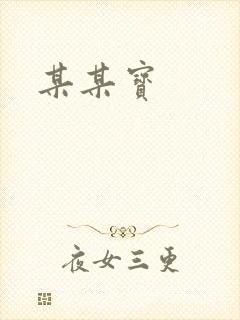 某某寶
夜女三更